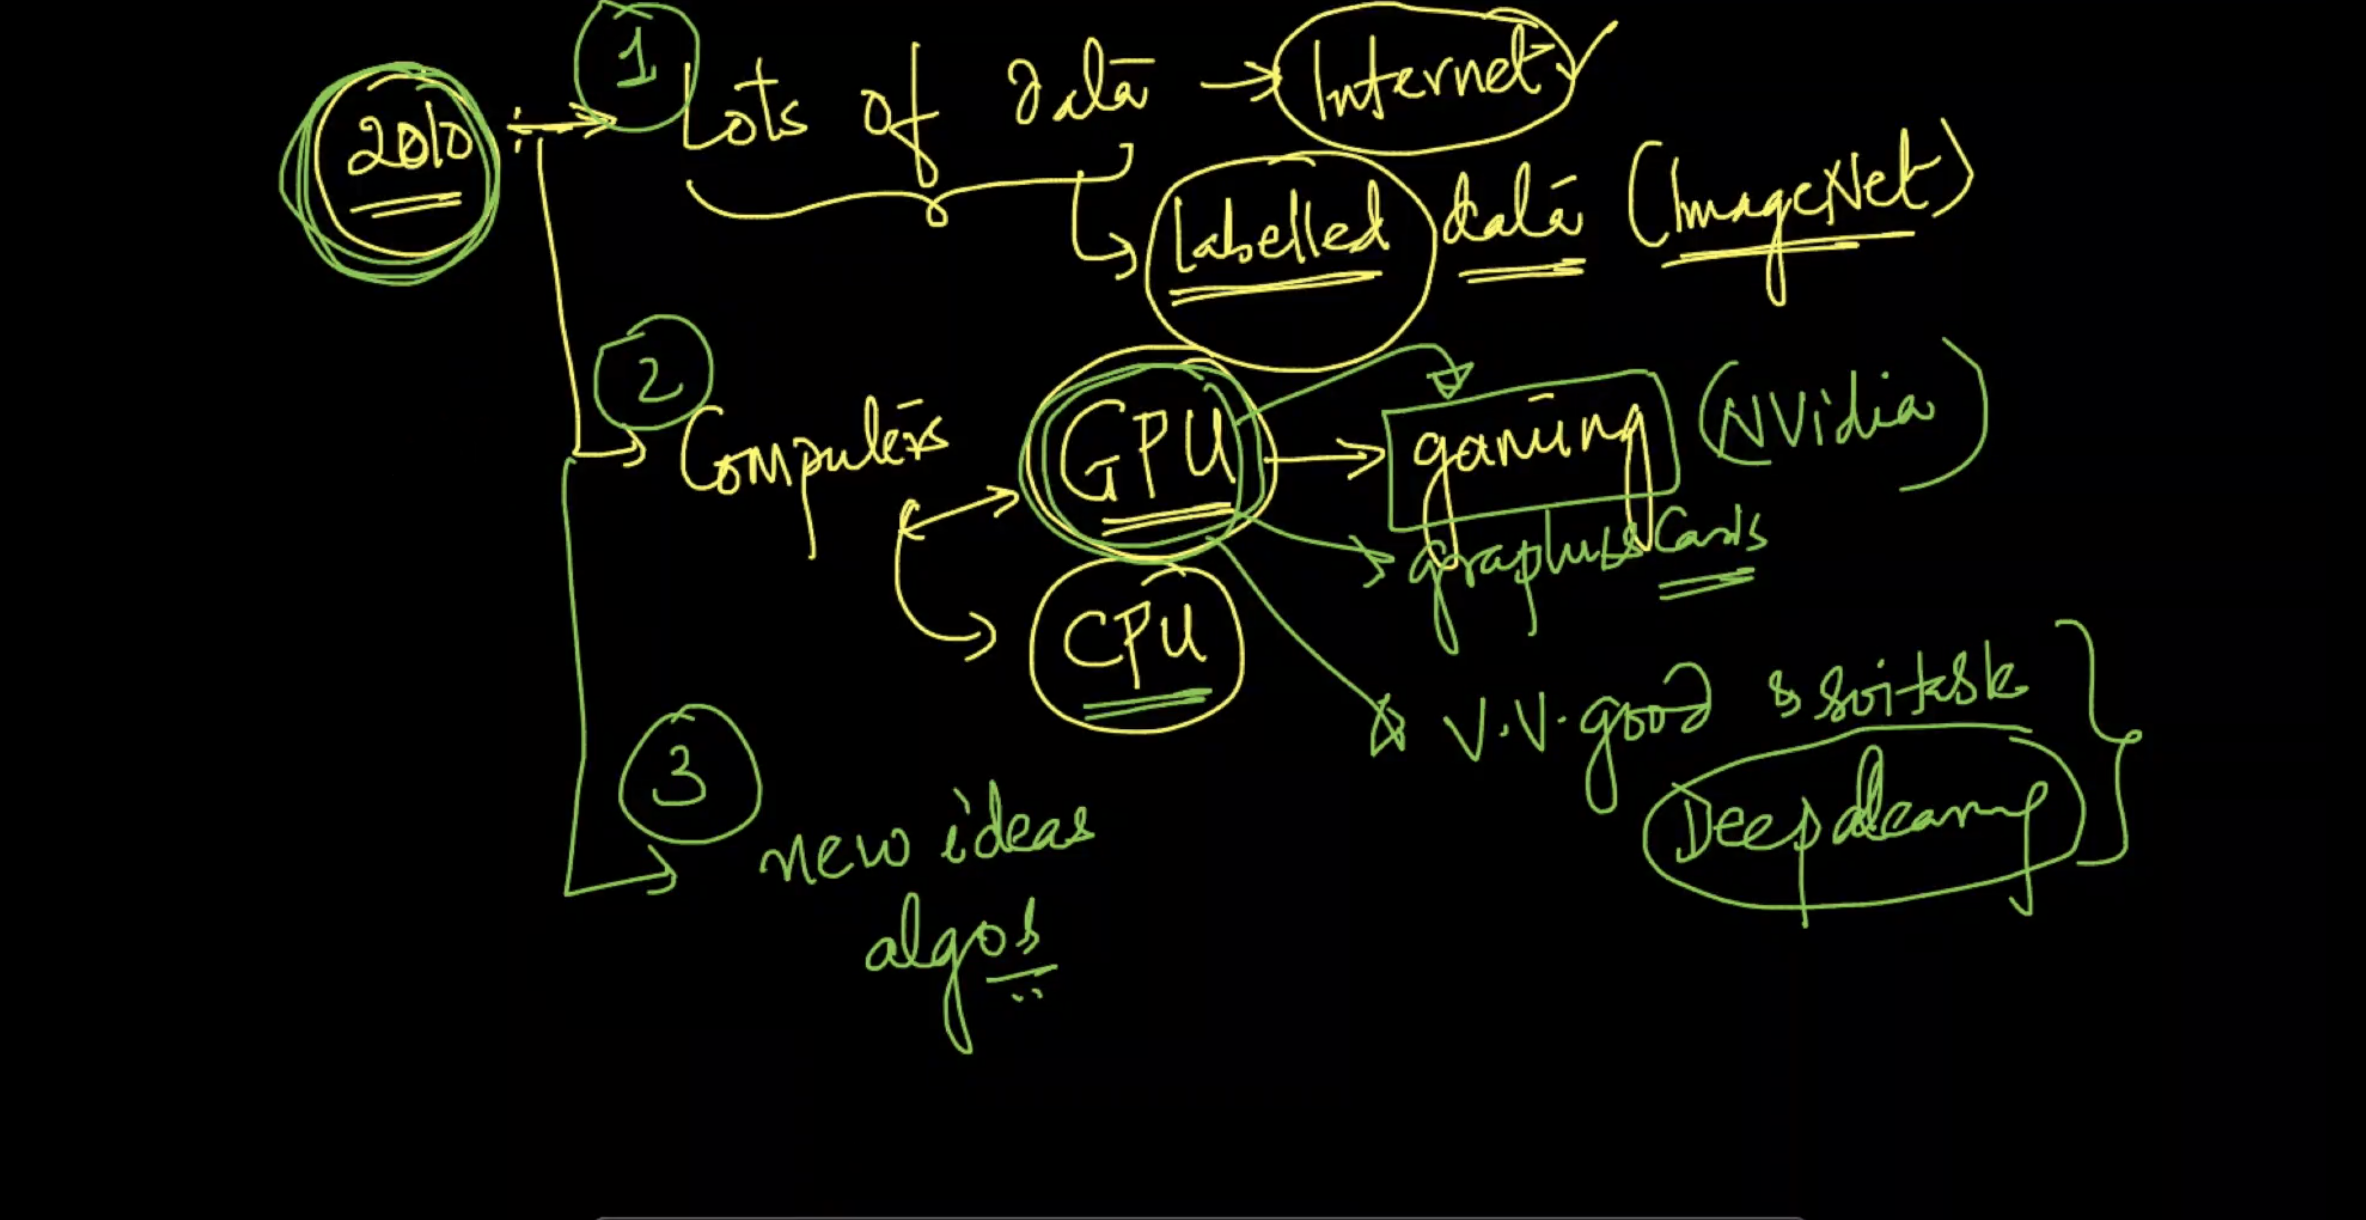 1
2010 : Lots of data → Internet ✓
Labelled data (ImageNet)
2
Computers GPU → gaming (NVidia)
graphics Cards
CPU
V.V. good & suitable
3
new ideas Deep learning
algos